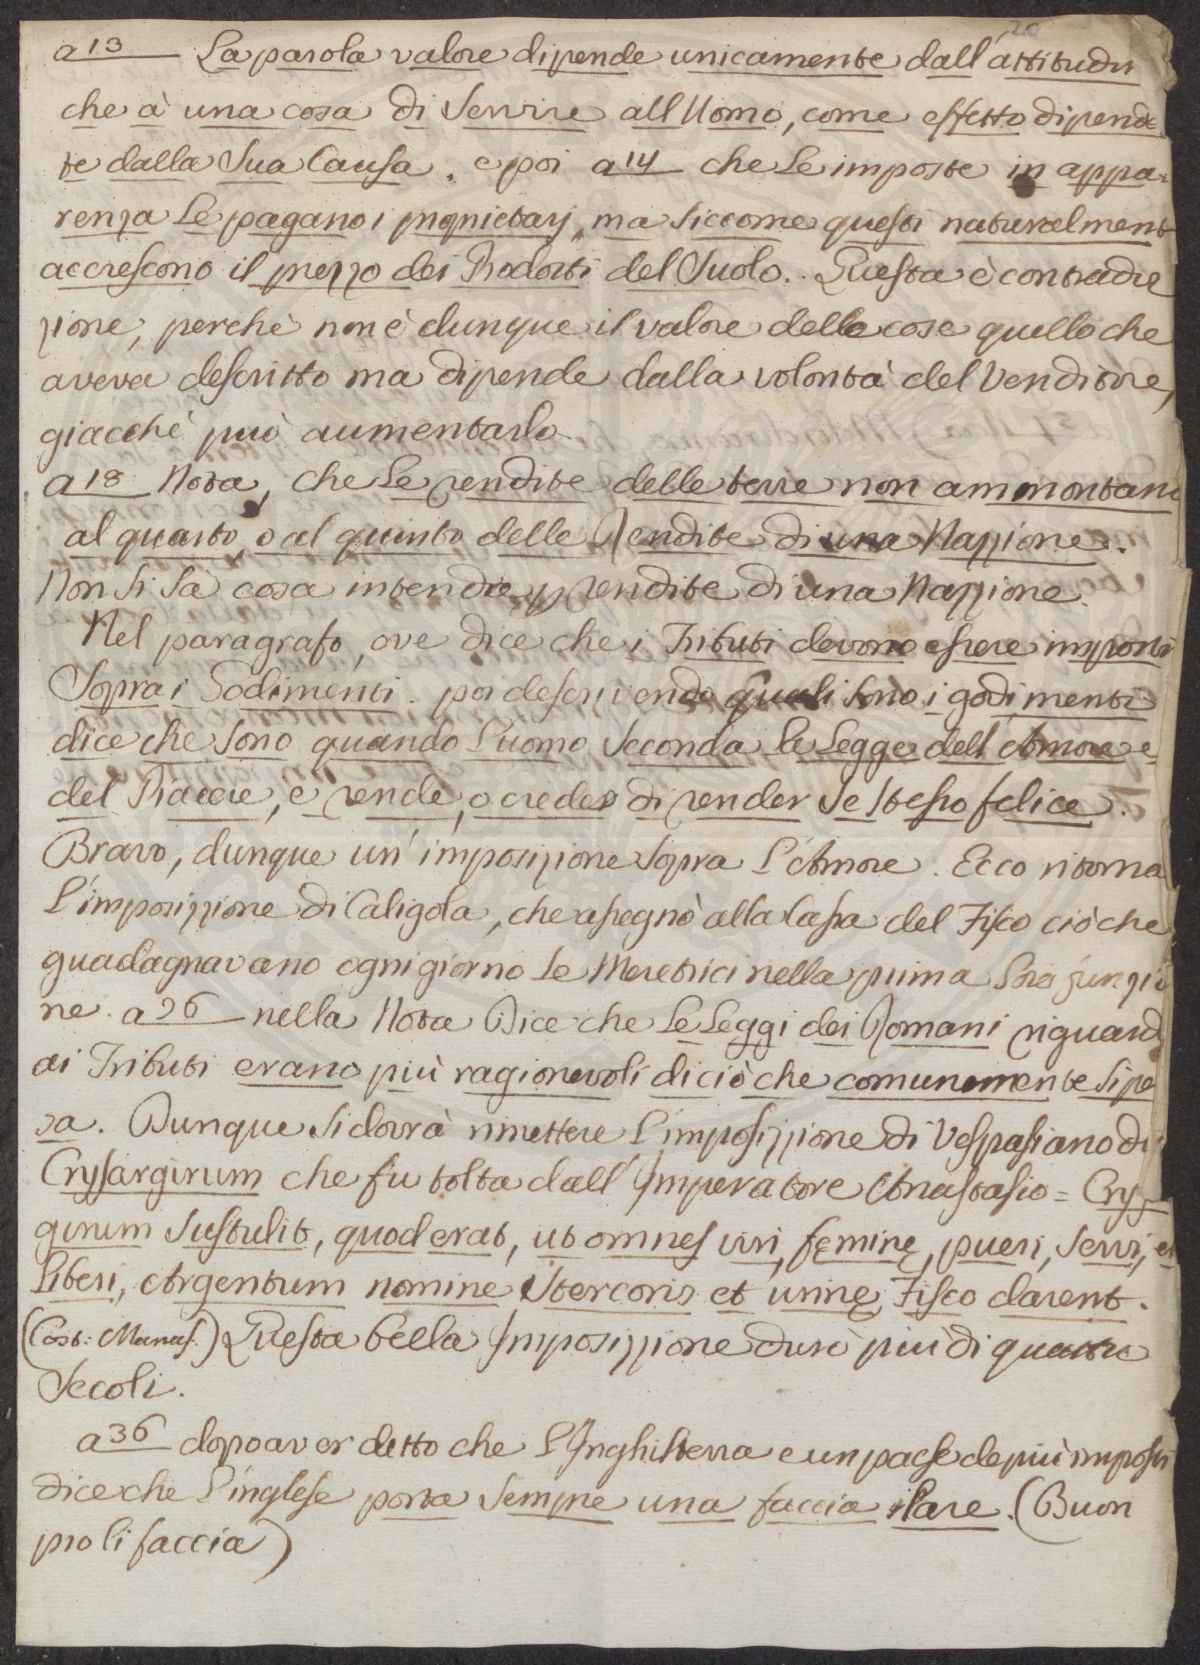 a 13 La parola valore dipende unicamente dall'attitudin
che à una cosa di Servire all Uomo, come effetto dipende
te dalla Sua Causa. e poi a 14 che Le imposte in appa=
renza Le pagano i proprietarj, ma Siccome questi naturalment
accrescono il prezzo dei Prodotti del Suolo.. Questa è contradi
zione, perchè non è dunque il valore delle cose quello che
aveva descritto ma dipende dalla volontà del Venditore,
giacchè può aumentarlo
a 18 Nota, che Le rendite delle terre non ammontano
al quarto, o al quinto delle Rendite di una Nazzione.
Non Si Sà cosa intendia p rendite di una Nazzione.
Nel paragrafo, ove dice che i Tributi devono essere imposti
Sopra i Godimenti. poi descrivendo quali Sono i godimenti
dice che Sono quando L'uomo Seconda La Legge dell Amore e
del Piacere, e rende, o crede di render Se Stesso felice.
Bravo, dunque un' imposizione Sopra L'Amore. Ecco ritorna
L'imposizzione di Caligola, che assegnò alla Cassa del Fisco ciò che
guadagnavano ogni giorno Le Meretrici nella prima Loro funzio
ne. a 26 nella Nota Dice che Le Leggi dei Romani riguard
ai Tributi erano più ragionevoli di ciò che comunemente Si pe
sa. Dunque Si dovrà rimettere L'imposizzione di Vespasiano di
Crysargirum che fu tolta dall' Imperatore Anastasio = Crys
girum Sustulit, quod erat, ut omnes viri, feminę, pueri, Servi, et
Liberi, Argentum nomine Stercoris et urinę Fisco darent.
(Cost: Manas.) Questa bella Imposizzione durò più di quattro
Secoli.
a 36 dopo aver detto che L'Inghilterra e un paese de più imposti
dice che L'inglese porta Sempre una faccia ilare. (Buon
pro li faccia)